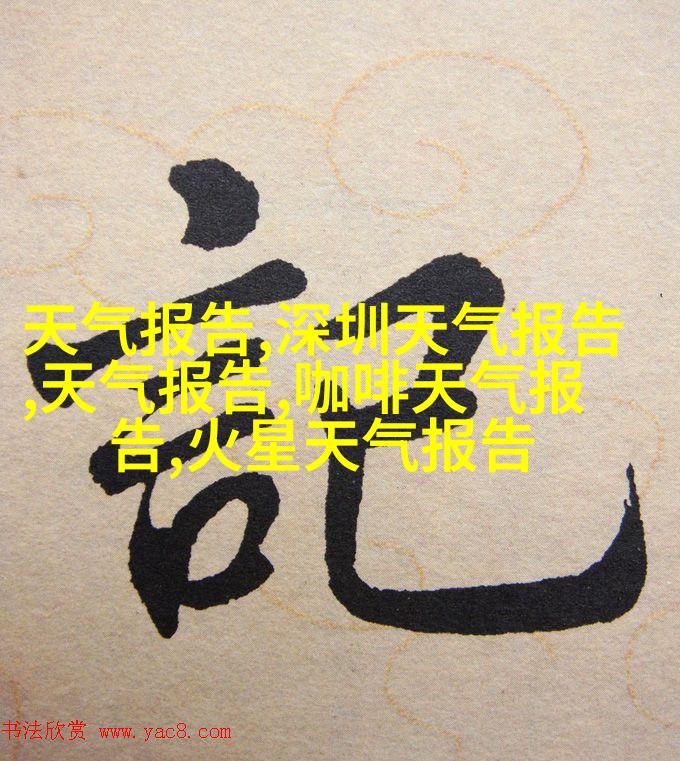 記
天气报告,深圳天气报告
,天气报告,咖啡天气报
告,火星天气报告
书法欣赏 www.yac8.com